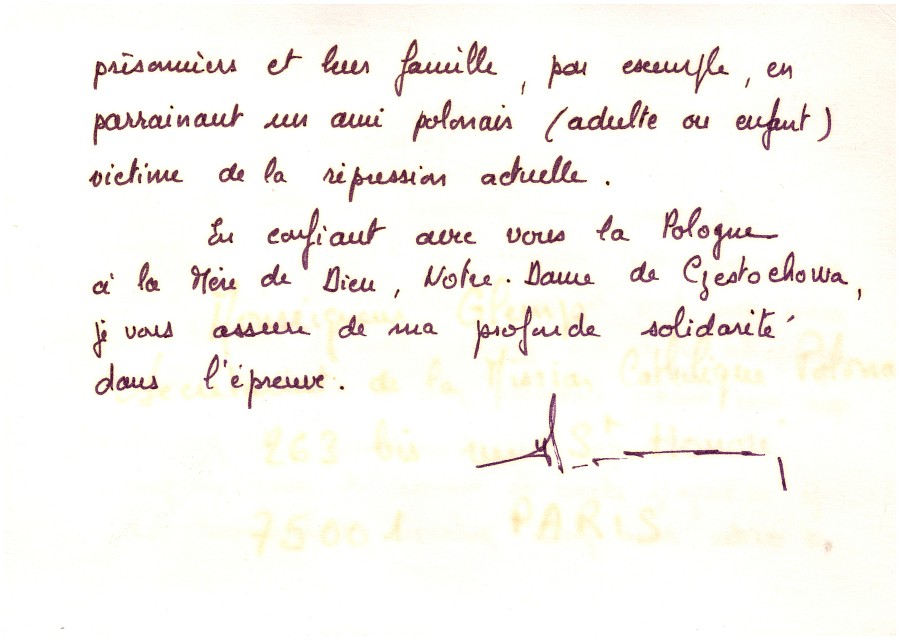 prisonniers et leur famille, par exemple, en
parrainant un ami polonais (adulte ou enfant)
victime de la répression actuelle.
En confiant avec vous la Pologne
à la Mère de Dieu, Notre-Dame de Czestochowa,
je vous assure de ma profonde solidarité
dans l'épreuve.
Monseigneur Glemp
de la Mission Catholique Polona
263 bis rue St Honoré
75001 PARIS